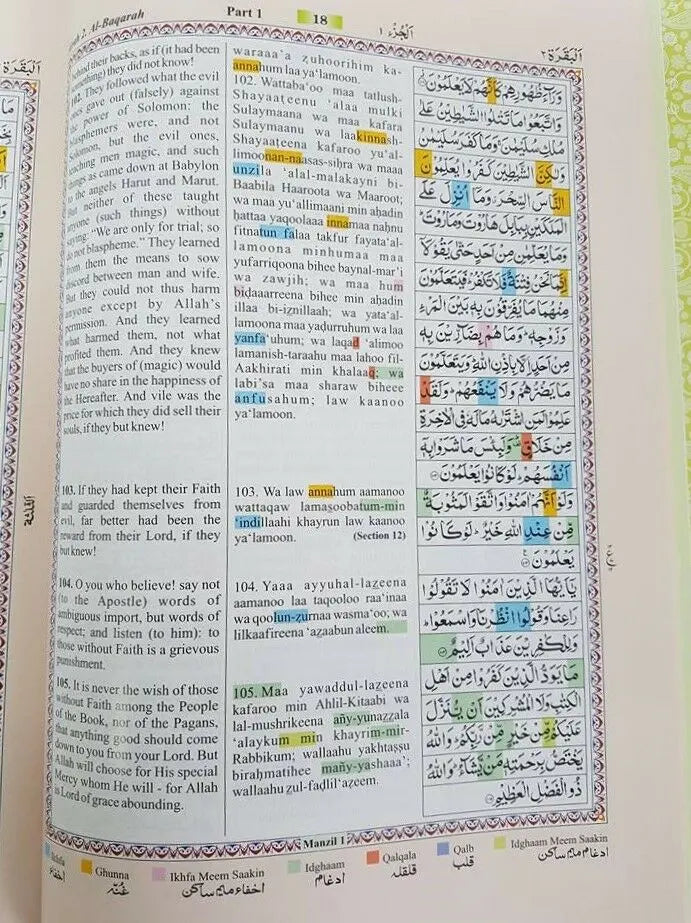 2. Al-Baqarah
Part 1
18
اَلْجُزْء ١
اَلْبَقَرَة ٢
behind their backs, as if (it had been
something) they did not know!
102. They followed what the evil
ones gave out (falsely) against
the power of Solomon: the
blasphemers were, and not
Solomon, but the evil ones,
teaching men magic, and such
things as came down at Babylon
to the angels Harut and Marut.
But neither of these taught
anyone (such things) without
saying: "We are only for trial; so
do not blaspheme." They learned
from them the means to sow
discord between man and wife.
But they could not thus harm
anyone except by Allah's
permission. And they learned
what harmed them, not what
profited them. And they knew
that the buyers of (magic) would
have no share in the happiness of
the Hereafter. And vile was the
price for which they did sell their
souls, if they but knew!
103. If they had kept their Faith
and guarded themselves from
evil, far better had been the
reward from their Lord, if they
but knew!
104. O you who believe! say not
(to the Apostle) words of
ambiguous import, but words of
respect; and listen (to him): to
those without Faith is a grievous
punishment.
105. It is never the wish of those
without Faith among the People
of the Book, nor of the Pagans,
that anything good should come
down to you from your Lord. But
Allah will choose for His special
Mercy whom He will - for Allah
is Lord of grace abounding.
waraaa'a zuhoorihim ka-
annahum laa ya'lamoon.
102. Wattaba'oo maa tatlush-
Shayaaṭeenu 'alaa mulki
Sulaymaana wa maa kafara
Sulaymaanu wa laakinnash-
Shayaaṭeena kafaroo yu'al-
limoonan-naasas-siḥra wa maaa
unzila 'alal-malakayni bi-
Baabila Haaroota wa Maaroot;
wa maa yu'allimaani min aḥadin
ḥattaa yaqoolaaa innamaa naḥnu
fitnatun falaa takfur fayata'al-
lamoona minhumaa maa
yufarriqoona bihee baynal-mar'i
wa zawjih; wa maa hum
biḍaaarreena bihee min aḥadin
illaa bi-iznillaah; wa yata'al-
lamoona maa yaḍurruhum wa laa
yanfa'uhum; wa laqad 'alimoo
lamanish-taraahu maa lahoo fil-
Aakhirati min khalaaq; wa
labi'sa maa sharaw biheee
anfusahum; law kaanoo
ya'lamoon.
103. Wa law annahum aamanoo
wattaqaw lamasoobatum-min
'indillaahi khayrun law kaanoo
ya'lamoon. (Section 12)
104. Yaaa ayyuhal-lazeena
aamanoo laa taqooloo raa'inaa
wa qoolun-zurnaa wasma'oo; wa
lilkaafireena 'azaabun aleem.
105. Maa yawaddul-lazeena
kafaroo min Ahlil-Kitaabi wa
lal-mushrikeena añy-yunazzala
'alaykum min khayrim-mir-
Rabbikum; wallaahu yakhtaṣṣu
biraḥmatihee mañy-yashaaa';
wallaahu zul-faḍlil'aẓeem.
وَرَآءَ ظُهُوْرِهِمْ كَاَنَّهُمْ لَا يَعْلَمُوْنَ
وَاتَّبَعُوْا مَا تَتْلُوا الشَّيٰطِيْنُ عَلٰى
مُلْكِ سُلَيْمٰنَ ۚ وَمَا كَفَرَ سُلَيْمٰنُ
وَلٰكِنَّ الشَّيٰطِيْنَ كَفَرُوْا يُعَلِّمُوْنَ
النَّاسَ السِّحْرَ ۚ وَمَآ اُنْزِلَ عَلَى
الْمَلَكَيْنِ بِبَابِلَ هَارُوْتَ وَمَارُوْتَ ؕ
وَمَا يُعَلِّمٰنِ مِنْ اَحَدٍ حَتّٰى يَقُوْلَآ
اِنَّمَا نَحْنُ فِتْنَةٌ فَلَا تَكْفُرْ ؕ فَيَتَعَلَّمُوْنَ
مِنْهُمَا مَا يُفَرِّقُوْنَ بِهٖ بَيْنَ الْمَرْءِ
وَزَوْجِهٖ ؕ وَمَا هُمْ بِضَآرِّيْنَ بِهٖ
مِنْ اَحَدٍ اِلَّا بِاِذْنِ اللّٰهِ ؕ وَيَتَعَلَّمُوْنَ
مَا يَضُرُّهُمْ وَلَا يَنْفَعُهُمْ ؕ وَلَقَدْ
عَلِمُوْا لَمَنِ اشْتَرٰىهُ مَا لَهٗ فِى الْاٰخِرَةِ
مِنْ خَلَاقٍ ؕ وَلَبِئْسَ مَا شَرَوْا بِهٖٓ
اَنْفُسَهُمْ ؕ لَوْ كَانُوْا يَعْلَمُوْنَ
وَلَوْ اَنَّهُمْ اٰمَنُوْا وَاتَّقَوْا لَمَثُوْبَةٌ
مِّنْ عِنْدِ اللّٰهِ خَيْرٌ ؕ لَوْ كَانُوْا
يَعْلَمُوْنَ
يٰٓاَيُّهَا الَّذِيْنَ اٰمَنُوْا لَا تَقُوْلُوْا
رَاعِنَا وَقُوْلُوا انْظُرْنَا وَاسْمَعُوْا ؕ
وَلِلْكٰفِرِيْنَ عَذَابٌ اَلِيْمٌ
مَا يَوَدُّ الَّذِيْنَ كَفَرُوْا مِنْ اَهْلِ
الْكِتٰبِ وَلَا الْمُشْرِكِيْنَ اَنْ يُّنَزَّلَ
عَلَيْكُمْ مِّنْ خَيْرٍ مِّنْ رَّبِّكُمْ ؕ وَاللّٰهُ
يَخْتَصُّ بِرَحْمَتِهٖ مَنْ يَّشَآءُ ؕ وَاللّٰهُ
ذُو الْفَضْلِ الْعَظِيْمِ
Manzil 1
Ikhfa
اخفاء
Ghunna
غُنّہ
Ikhfa Meem Saakin
اخفاء میم ساکن
Idghaam
ادغام
Qalqala
قلقلہ
Qalb
قلب
Idghaam Meem Saakin
ادغام میم ساکن